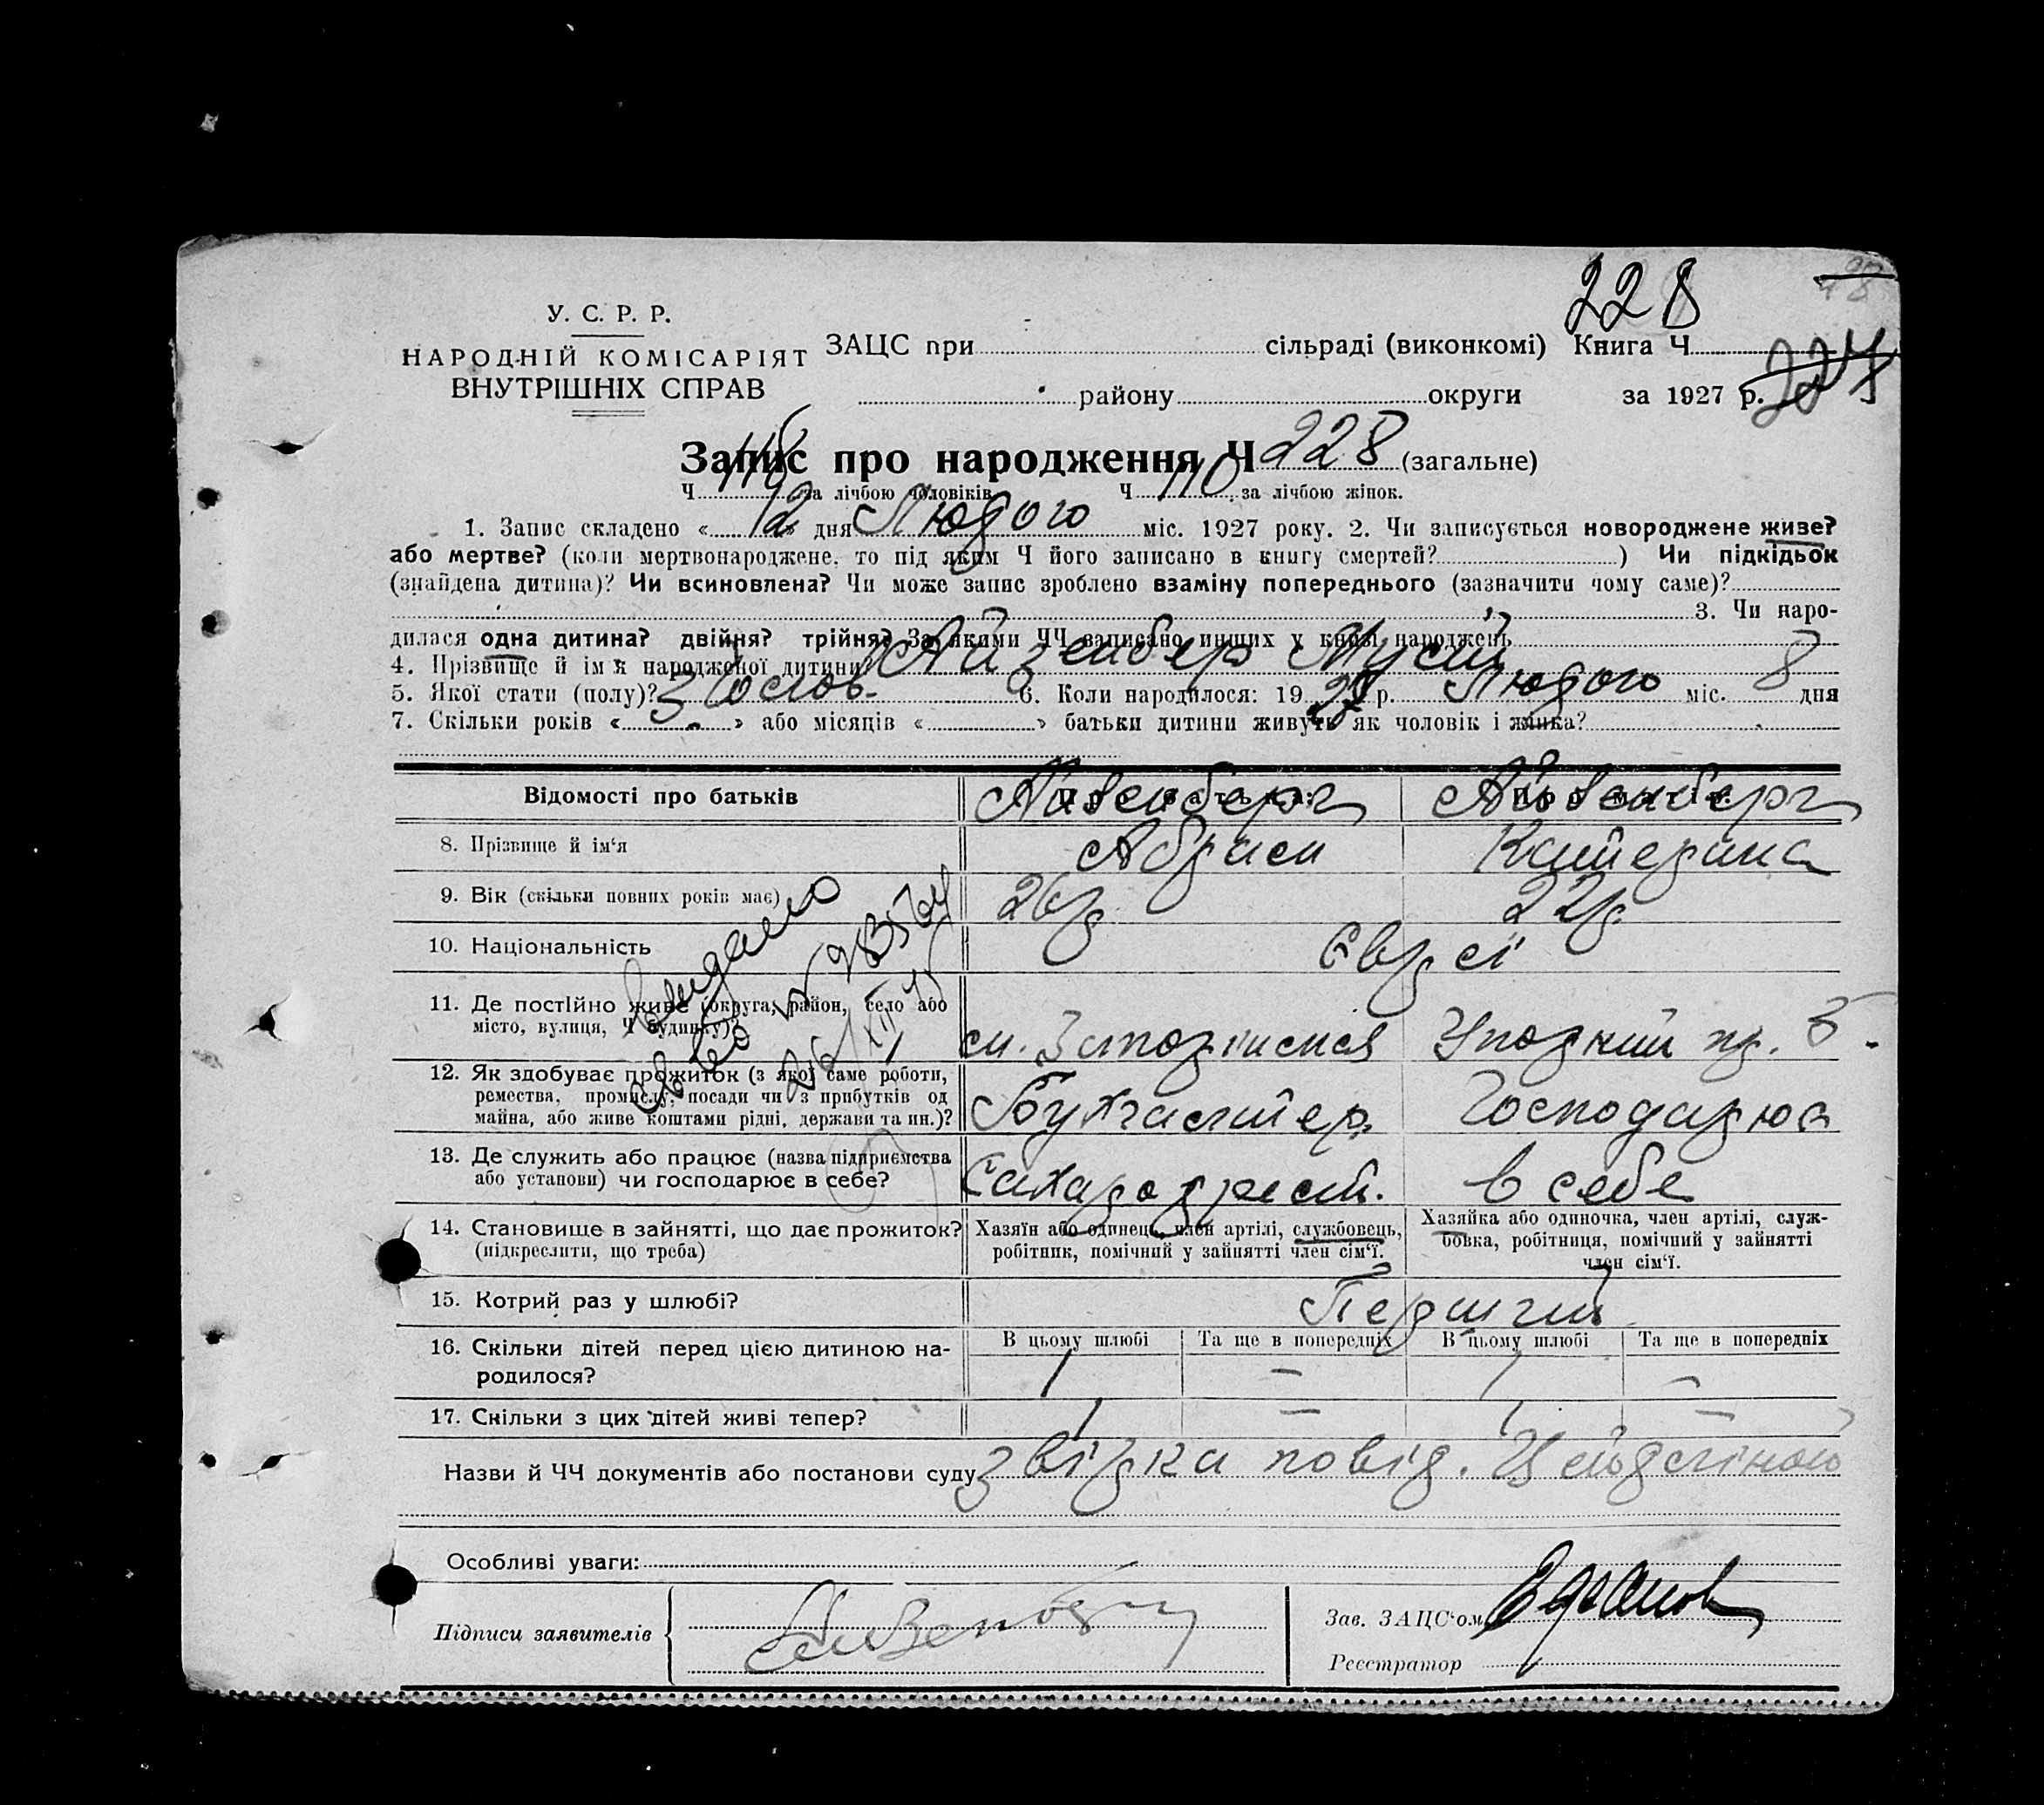 228
У. С. Р. Р.
НАРОДНІЙ КОМІСАРІЯТ
ВНУТРІШНІХ СПРАВ
ЗАЦС при сільраді (виконкомі) Книга Ч.
району округи за 1927 р. 224
Запис про народження Ч 228 (загальне)
Ч 118 за лічбою чоловіків Ч 110 за лічбою жінок.
1. Запис складено « 12 » дня Лютого міс. 1927 року. 2. Чи записується новороджене живе?
або мертве? (коли мертвонароджене, то під яким Ч його записано в книгу смертей? ) Чи підкідьок
(знайдена дитина)? Чи всиновлена? Чи може запис зроблено взаміну попереднього (зазначити чому саме)?
3. Чи наро-
дилася одна дитина? двійня? трійня? За якими ЧЧ записано инших у книзі народжень
4. Прізвище й ім'я народженої дитини? Айзенберг Мусій
5. Якої стати (полу)? 6. Коли народилося: 19 27 р. Лютого міс. 8 дня
7. Скільки років « » або місяців « » батьки дитини живуть як чоловік і жінка?
Відомості про батьків Айзенберг Айзенберг
8. Прізвище й ім'я Абрам Катерина
9. Вік (скільки повних років має) 26 р. 22 р.
10. Національність Євреї
11. Де постійно живе (округа, район, село або
місто, вулиця, Ч будинку)? м. Запоріжжя
12. Як здобуває прожиток (з якої саме роботи,
ремества, промислу, посади чи з прибутків од
майна, або живе коштами рідні, держави та ин.)? Бухгалтер Господарює
13. Де служить або працює (назва підприємства
або установи) чи господарює в себе? в себе
14. Становище в зайнятті, що дає прожиток?
(підкреслити, що треба)
Хазяїн або одинець, член артілі, службовець,
робітник, помічний у зайнятті член сім'ї.
Хазяйка або одиночка, член артілі, служ-
бовка, робітниця, помічний у зайнятті
член сім'ї.
15. Котрий раз у шлюбі? Перший
16. Скільки дітей перед цією дитиною на-
родилося?
В цьому шлюбі Та ще в попередніх В цьому шлюбі Та ще в попередніх
1 – 1 –
17. Скільки з цих дітей живі тепер? 1 – 1 –
Назви й ЧЧ документів або постанови суду
Особливі уваги:
Підписи заявителів
Зав. ЗАЦС'ом
Реєстратор
видано